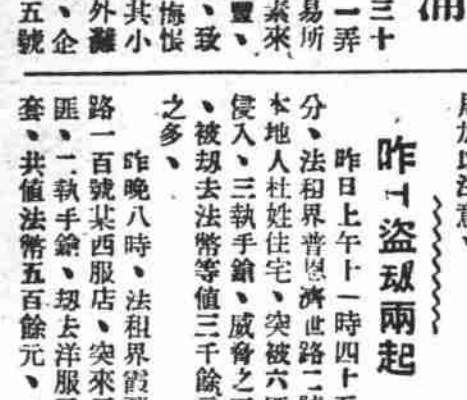 三十
一弄
易所
素來
豐、
、致
悔恨
其小
外灘
、企
五號
注意、
昨盜刼兩起
昨日上午十一時四十
分、法租界普恩濟世路二
本地人杜姓住宅、突被六
侵入、三執手鎗、威脅之
、被刼去法幣等值三千餘
之多、
昨晚八時、法租界霞
路一百號某西服店、突來
匪、二執手鎗、刼去洋服
套、共值法幣五百餘元、